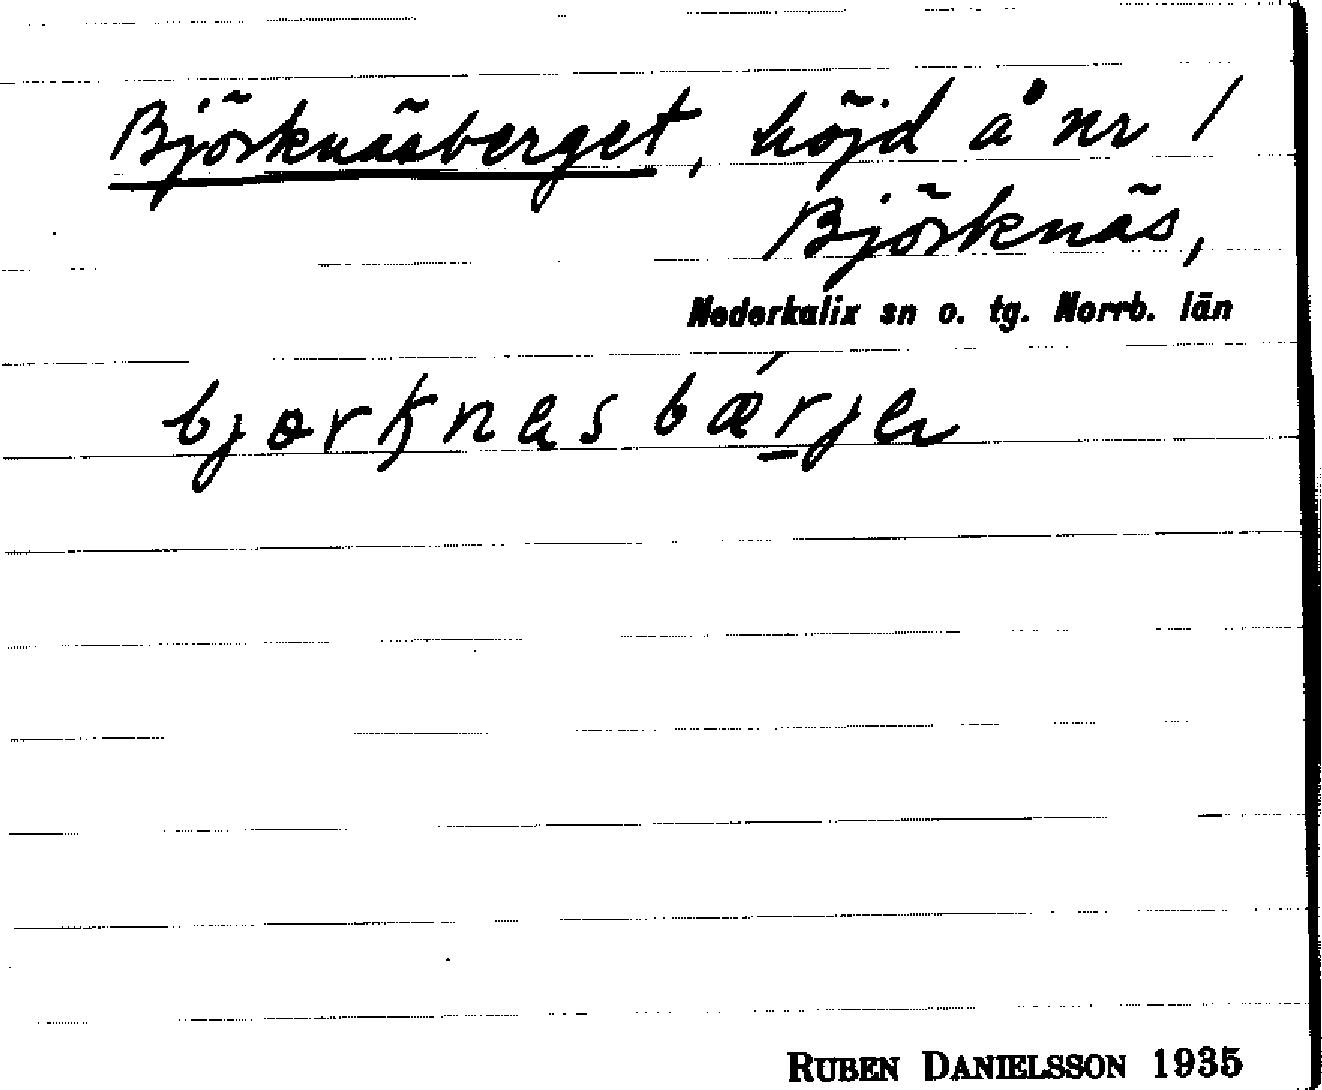 Björknäsberget, höjd å nr 1
Björknäs,
Nederkalix sn o. tg. Norrb. län
bjørknęsbǽrje
RUBEN DANIELSSON 1935